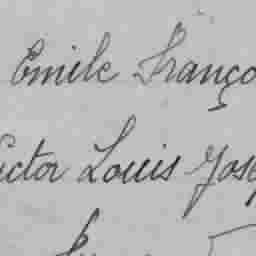 Emile Franço
ictor Louis Jose